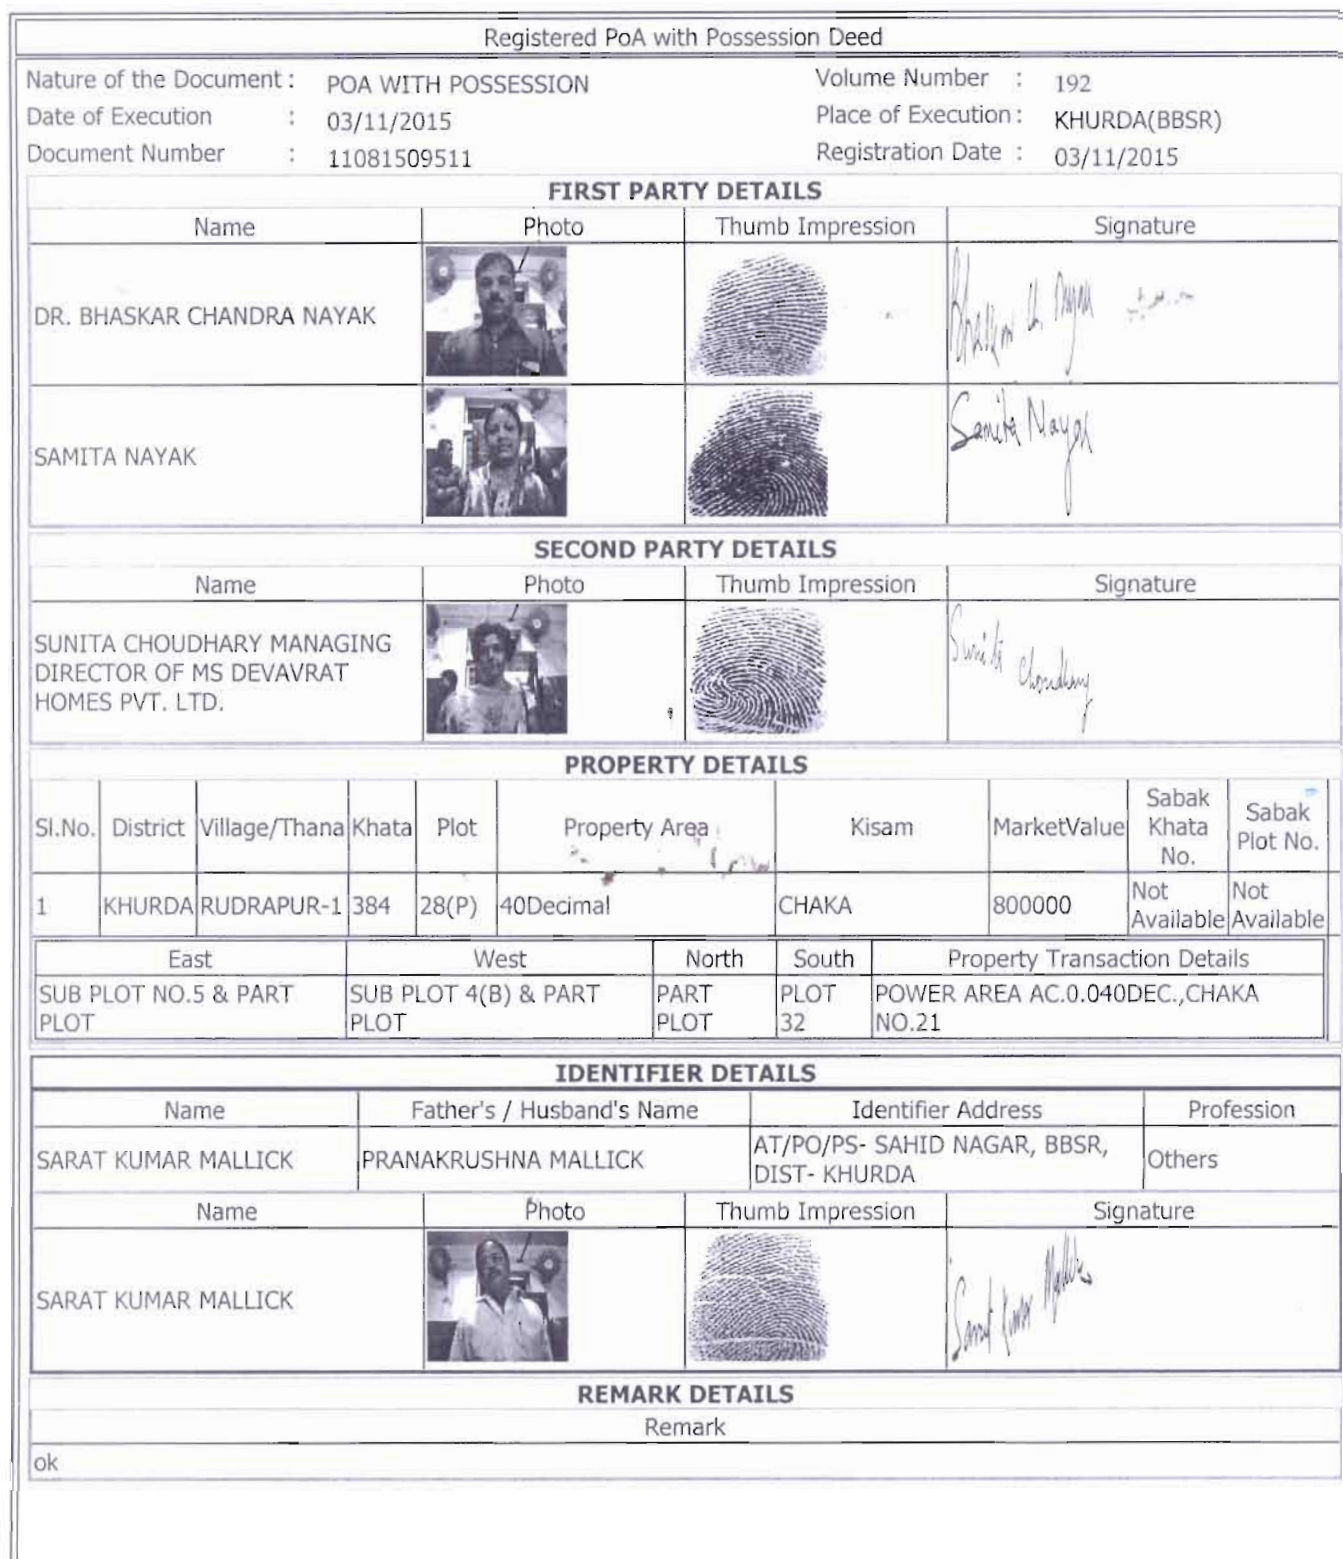 Registered PoA with Possession Deed
Nature of the Document : POA WITH POSSESSION Volume Number : 192
Date of Execution : 03/11/2015 Place of Execution : KHURDA(BBSR)
Document Number : 11081509511 Registration Date : 03/11/2015
FIRST PARTY DETAILS
Name Photo Thumb Impression Signature
DR. BHASKAR CHANDRA NAYAK
SAMITA NAYAK Samita Nayak
SECOND PARTY DETAILS
Name Photo Thumb Impression Signature
SUNITA CHOUDHARY MANAGING
DIRECTOR OF MS DEVAVRAT
HOMES PVT. LTD.
Sunita Choudhary
PROPERTY DETAILS
Sl.No. District Village/Thana Khata Plot Property Area Kisam MarketValue Sabak Khata No. Sabak Plot No.
1 KHURDA RUDRAPUR-1 384 28(P) 40Decimal CHAKA 800000 Not Available Not Available
East West North South Property Transaction Details
SUB PLOT NO.5 & PART PLOT SUB PLOT 4(B) & PART PLOT PART PLOT PLOT 32 POWER AREA AC.0.040DEC.,CHAKA NO.21
IDENTIFIER DETAILS
Name Father's / Husband's Name Identifier Address Profession
SARAT KUMAR MALLICK PRANAKRUSHNA MALLICK AT/PO/PS- SAHID NAGAR, BBSR, DIST- KHURDA Others
Name Photo Thumb Impression Signature
SARAT KUMAR MALLICK Sarat Kumar Mallick
REMARK DETAILS
Remark
ok